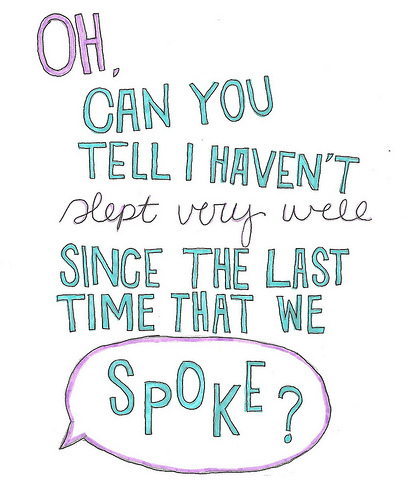 OH,
CAN YOU
TELL I HAVEN'T
slept very well
SINCE THE LAST
TIME THAT WE
SPOKE?